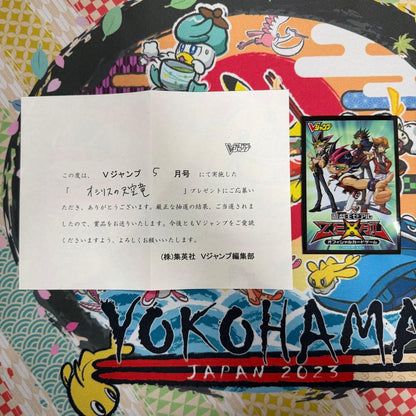 Vジャンプ
この度は、Vジャンプ 5 月号 にて実施した
「 オシリスの天空竜 」プレゼントにご応募い
ただき、ありがとうございます。厳正な抽選の結果、ご当選されま
したので、賞品をお送りいたします。今後ともVジャンプをご愛読
くださいますよう、よろしくお願いいたします。
(株)集英社 Vジャンプ編集部
Vジャンプ
遊戯王ゼアル
ZEXAL
オフィシャルカードゲーム
YOKOHAMA
JAPAN 2023